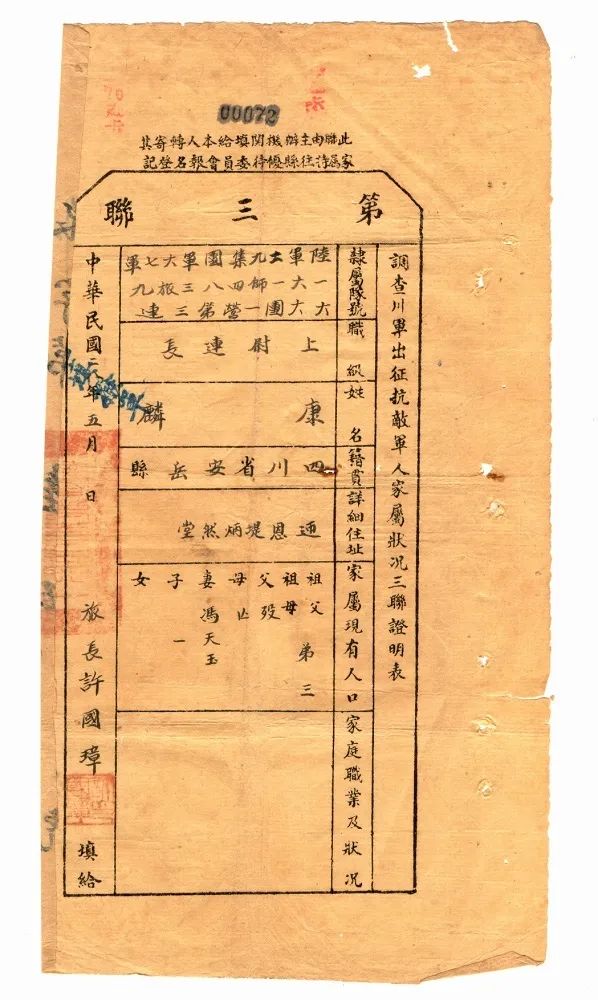 00072
此聯由主辦機関填給本人轉寄其
家属持往縣優待委員會報名登記
第三聯
調查川軍出征抗敵軍人家屬狀況三聯證明表
隸屬隊號
陸軍二十九集團軍六七軍
一六一師四八三旅九
六六團一營第三連
職級
上尉連長
姓名
康麟
籍貫
四川省安岳縣
詳細住址
通恩堤炳然堂
家屬現有人口
祖父
祖母
弟三
父殁
母亡
妻馮天玉
子一
女
家庭職業及狀況
中華民國年五月日
旅長許國璋
填給